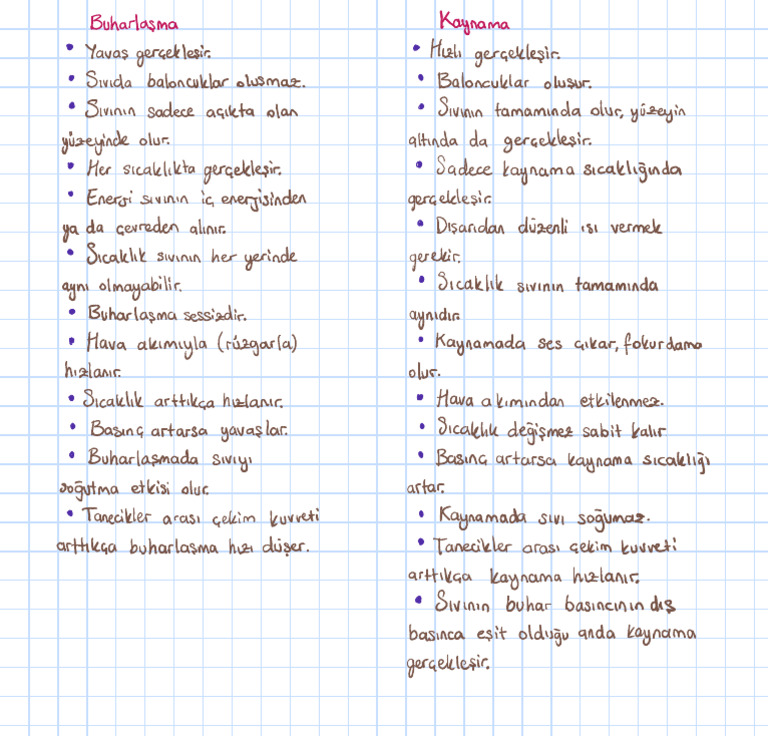 Buharlaşma
• Yavaş gerçekleşir.
• Sıvıda baloncuklar oluşmaz.
• Sıvının sadece açıkta olan
yüzeyinde olur.
• Her sıcaklıkta gerçekleşir.
• Enerji sıvının iç enerjisinden
ya da çevreden alınır.
• Sıcaklık sıvının her yerinde
aynı olmayabilir.
• Buharlaşma sessizdir.
• Hava akımıyla (rüzgarla)
hızlanır.
• Sıcaklık arttıkça hızlanır.
• Basınç artarsa yavaşlar.
• Buharlaşmada sıvıyı
soğutma etkisi olur.
• Tanecikler arası çekim kuvveti
arttıkça buharlaşma hızı düşer.
Kaynama
• Hızlı gerçekleşir.
• Baloncuklar oluşur.
• Sıvının tamamında olur, yüzeyin
altında da gerçekleşir.
• Sadece kaynama sıcaklığında
gerçekleşir.
• Dışarıdan düzenli ısı vermek
gerekir.
• Sıcaklık sıvının tamamında
aynıdır.
• Kaynamada ses çıkar, fokurdama
olur.
• Hava akımından etkilenmez.
• Sıcaklık değişmez sabit kalır
• Basınç artarsa kaynama sıcaklığı
artar.
• Kaynamada sıvı soğumaz.
• Tanecikler arası çekim kuvveti
arttıkça kaynama hızlanır.
• Sıvının buhar basıncının dış
basınca eşit olduğu anda kaynama
gerçekleşir.